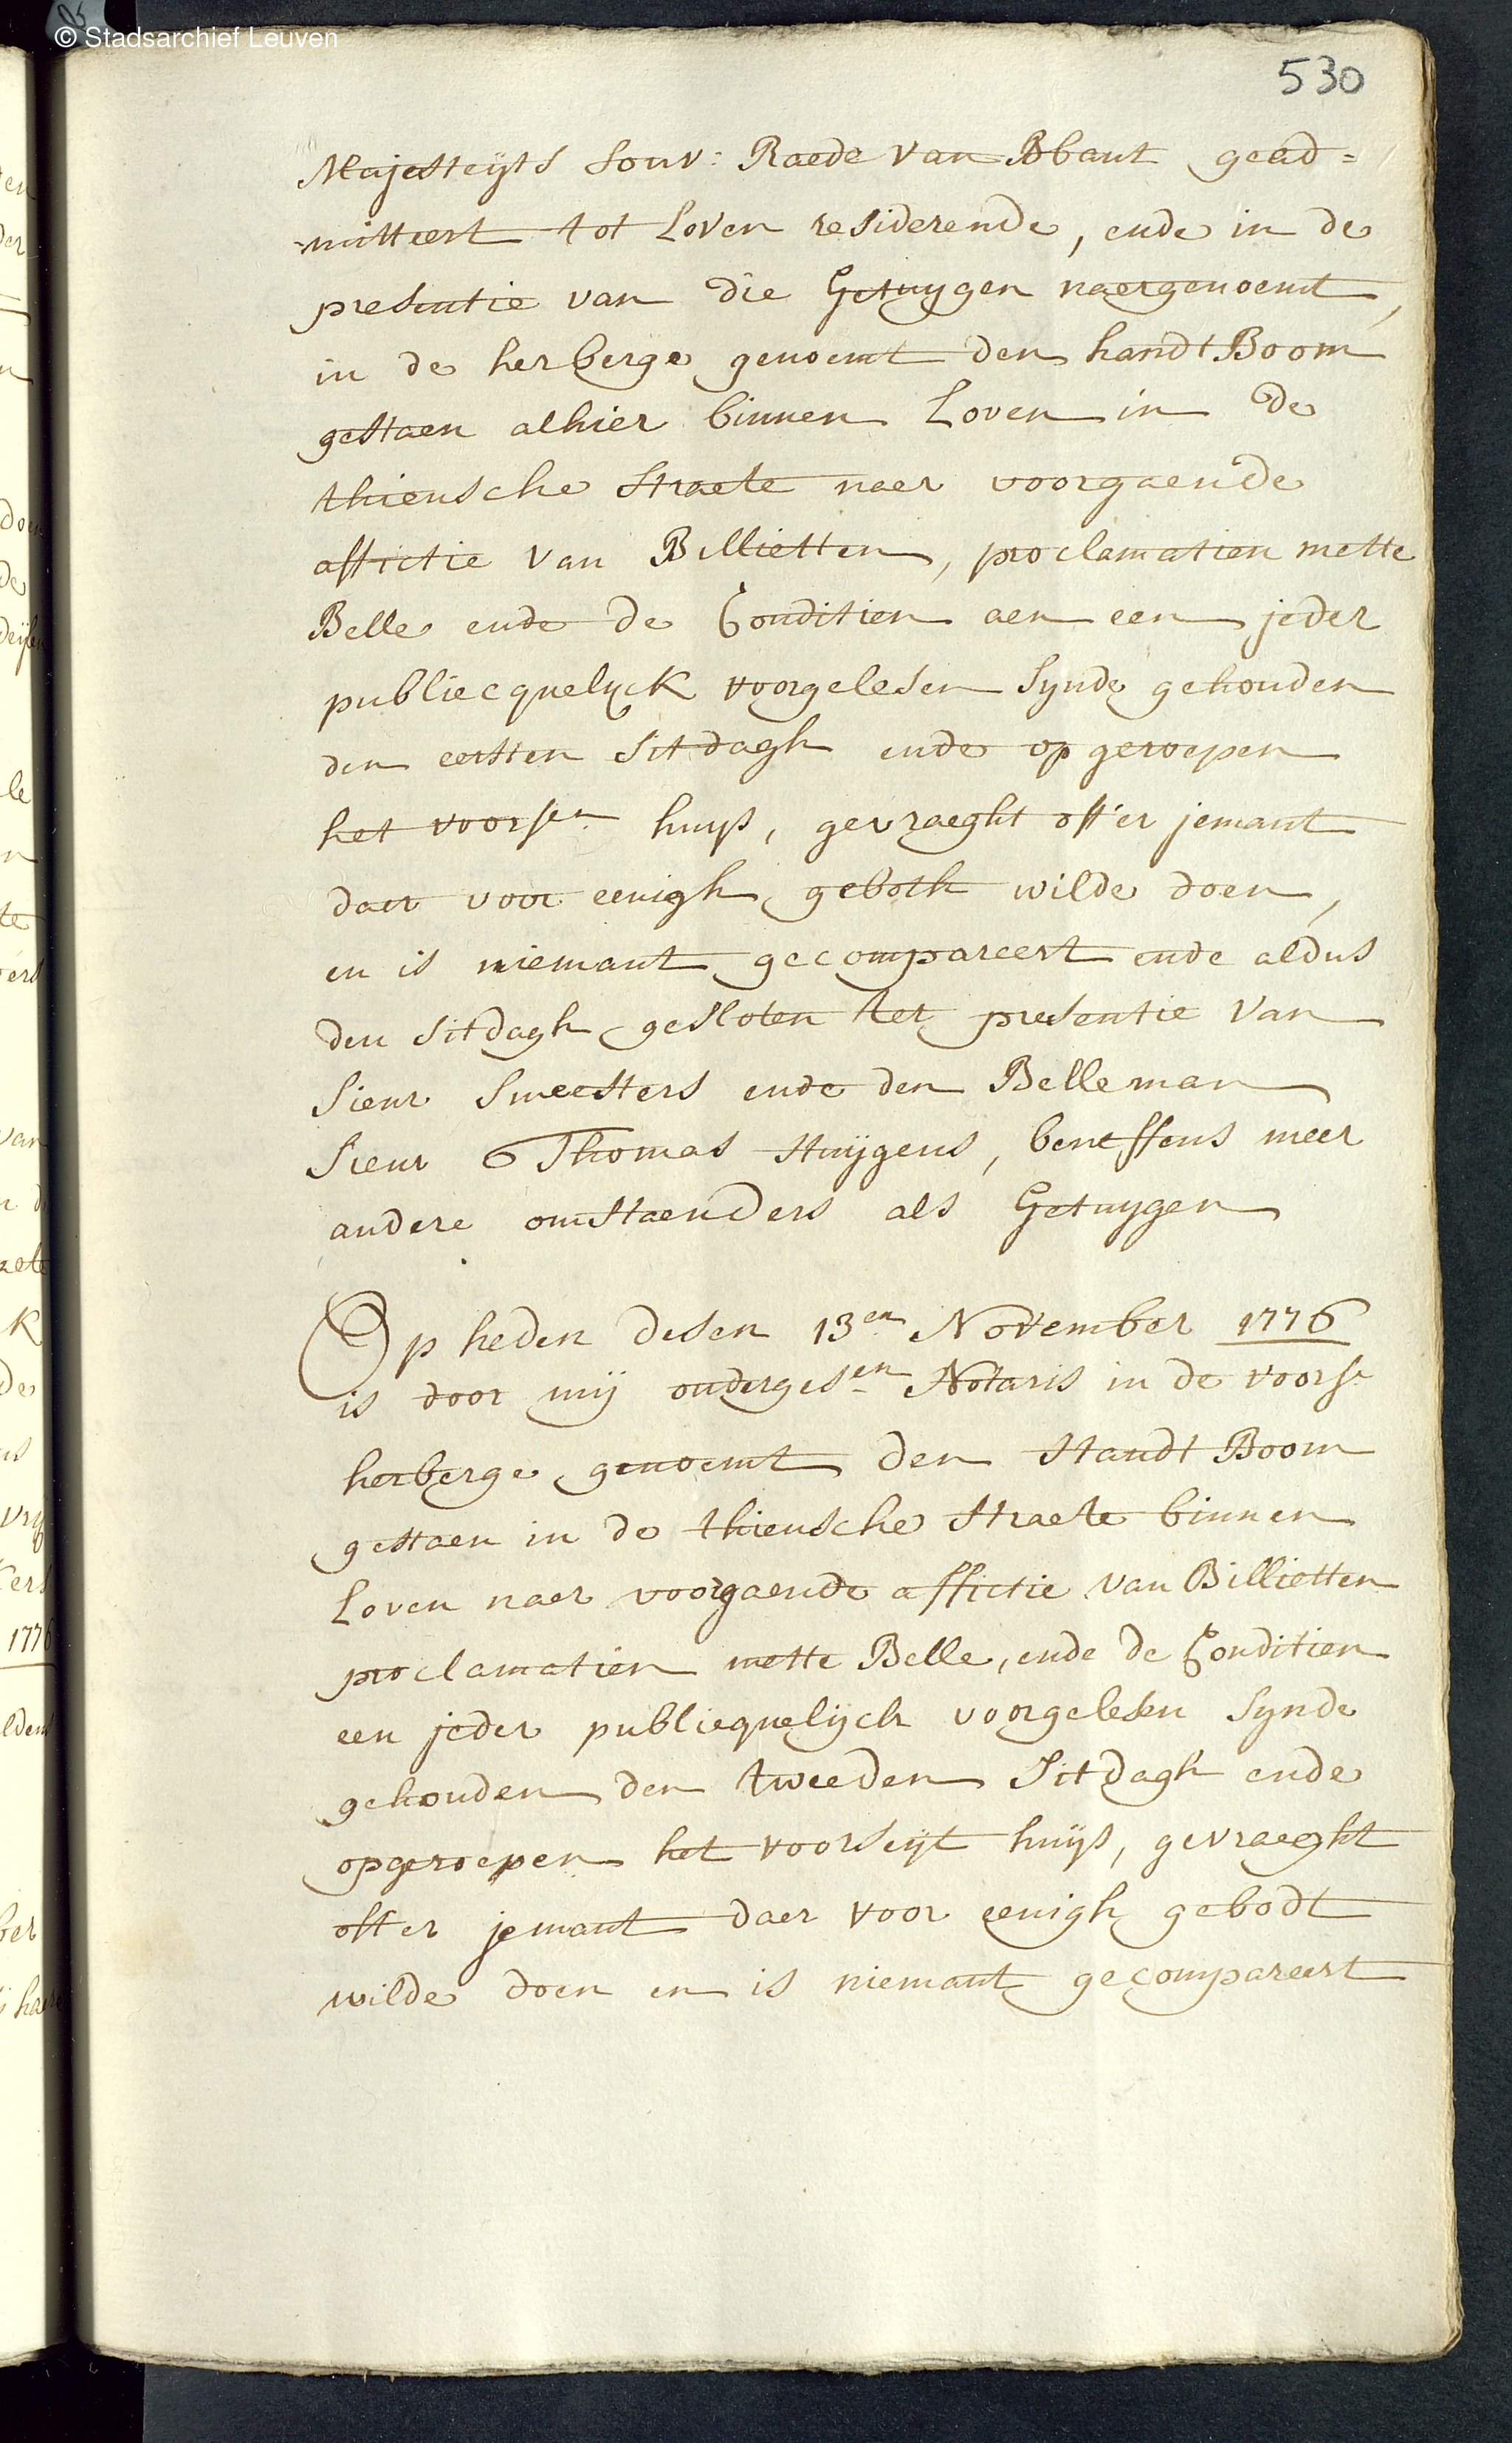 © Stadsarchief Leuven
530
Majesteyts Souv: Raede van Bbant gead=
=mitteert tot Loven residerende, ende in de
presentie van die Getuygen naergenoemt,
in de herberge genoemt den handtBoom
gestaen alhier binnen Loven in de
thiensche straete naer voorgaende
affictie van Billietten, proclamatien mette
Belle ende de Conditien aen een jeder
publiecquelyck voorgelesen synde gehouden
den eersten sitdagh ende opgeroepen
het voorsen huys, gevraeght oft'er jemant
daer voor eenigh geboth wilde doen,
en is niemant gecompareert ende aldus
den sitdagh gesloten ter presentie van
Sieur Smeesters ende den Belleman
Sieur Thomas Huijgens, beneffens meer
andere omstaenders als Getuygen
Op heden desen 13en November 1776
is door mij ondergesen Notaris in de voorse
herberge genoemt den Handt Boom
gestaen in de thiensche straete binnen
Loven naer voorgaende affictie van Billietten
proclamatien mette Belle, ende de Conditien
een jeder publiequelijck voorgelesen synde
gehouden den tweeden Sitdagh ende
opgeroepen het voorseyt huijs, gevraeght
oft er jemant daer voor eenigh gebodt
wilde doen en is niemant gecompareert